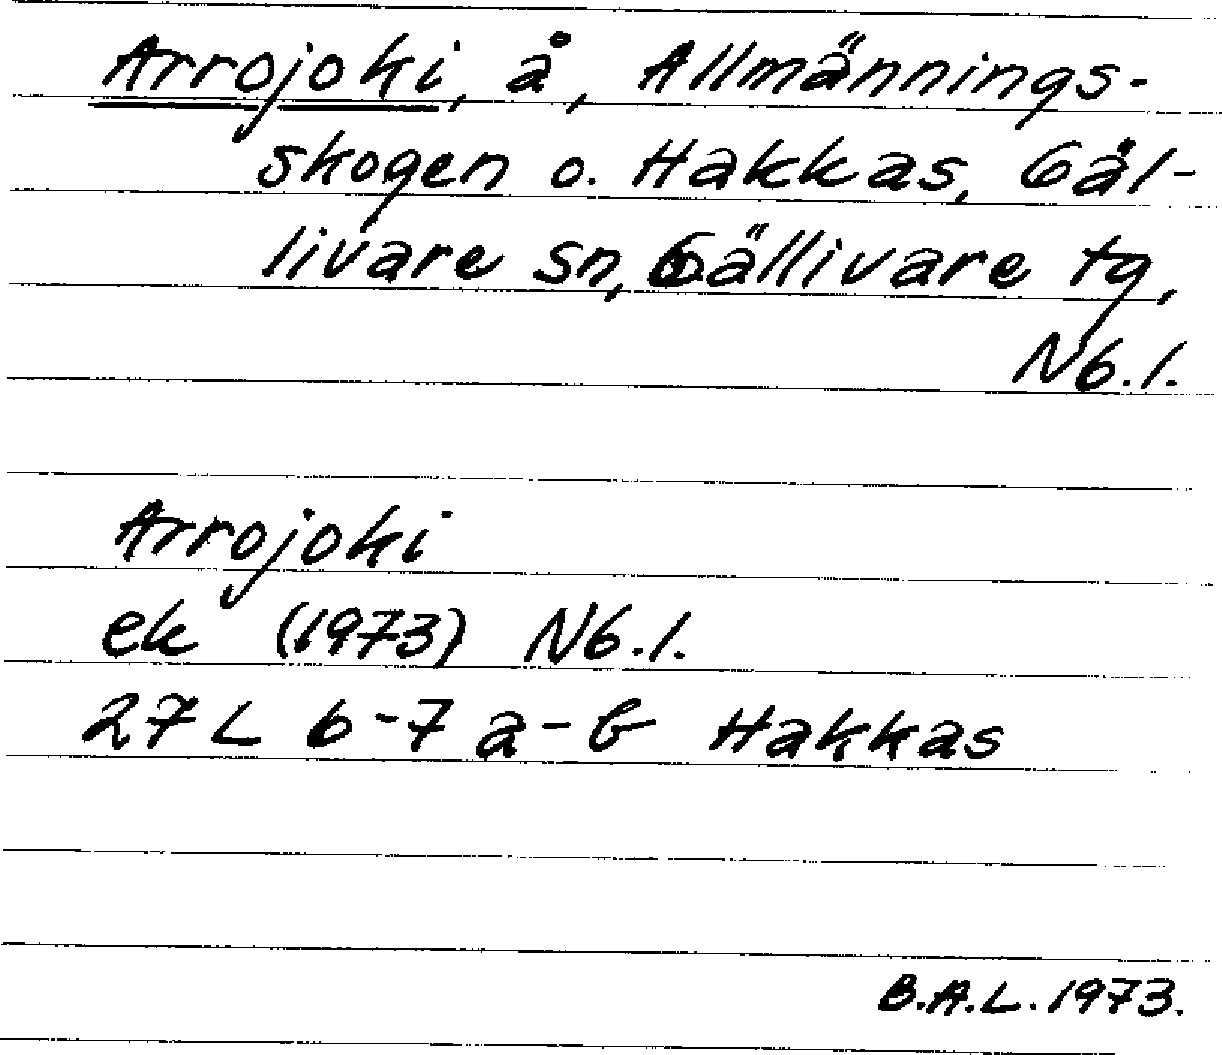 Arrojoki, å, Allmännings-
skogen o. Hakkas, Gäl-
livare sn, Gällivare tg,
Nb.l.
Arrojoki
ek (1973) Nb.l.
27 L 6-7 a-b Hakkas
B.A.L. 1973.